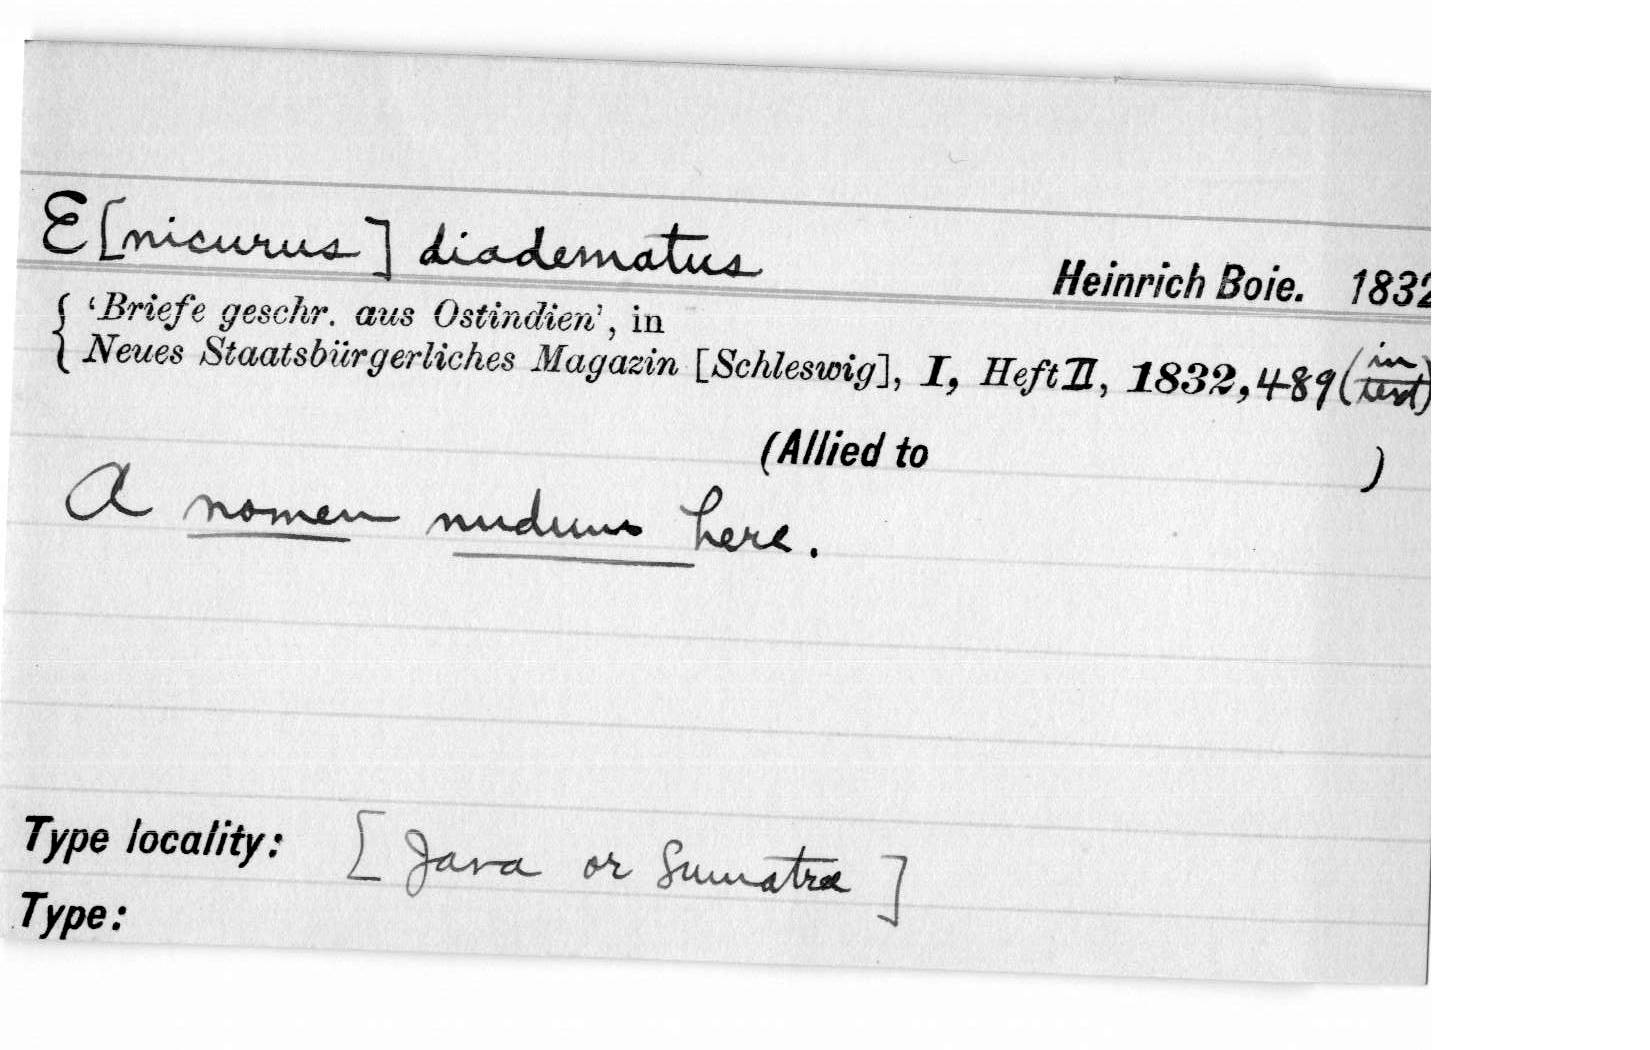 E[nicurus] diadematus
Heinrich Boie. 1832
'Briefe geschr. aus Ostindien', in
Neues Staatsbürgerliches Magazin [Schleswig], I, Heft II, 1832, 489 (in text)
(Allied to )
A nomen nudum here.
Type locality: [Java or Sumatra]
Type: